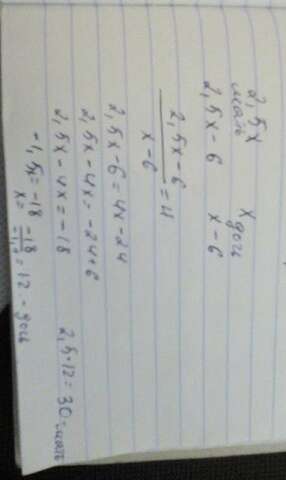 2,5x x
мать дочь
2,5x-6 x-6
2,5x-6
x-6
=4
2,5x-6=4x-24
2,5x-4x=-24+6
2,5x-4x=-18
-1,5x=-18 2,5·12=30 мать
x= -18
-1,5
=12 - дочь